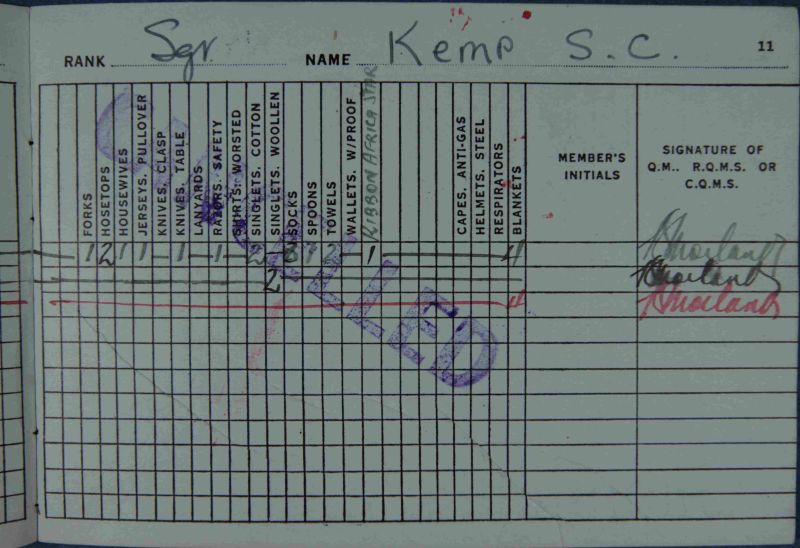 RANK Sgt. NAME Kemp S. C. 11
FORKS
HOSETOPS
HOUSEWIVES
JERSEYS, PULLOVER
KNIVES, CLASP
KNIVES, TABLE
LANYARDS
RAZORS, SAFETY
SHIRTS, WORSTED
SINGLETS, COTTON
SINGLETS, WOOLLEN
SOCKS
SPOONS
TOWELS
WALLETS, W/PROOF
RIBBON AFRICA STAR
CAPES, ANTI-GAS
HELMETS, STEEL
RESPIRATORS
BLANKETS
MEMBER'S
INITIALS
SIGNATURE OF
Q.M., R.Q.M.S. OR
C.Q.M.S.
1 2 1 1 1 1 2 3 1 2 1 4
2
4
CANCELLED